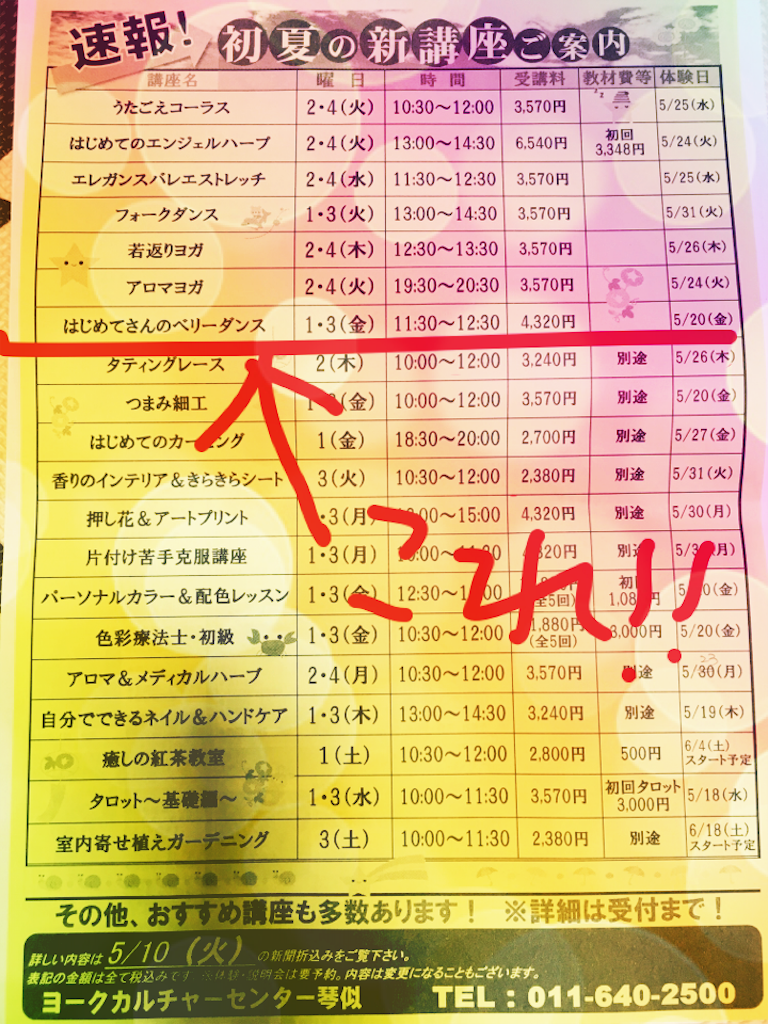 速報!
初夏の新講座ご案内
講座名 曜日 時間 受講料 教材費等 体験日
うたごえコーラス 2・4(火) 10:30〜12:00 3,570円 5/25(水)
はじめてのエンジェルハープ 2・4(火) 13:00〜14:30 6,540円 初回 3,348円 5/24(火)
エレガンスバレエストレッチ 2・4(水) 11:30〜12:30 3,570円 5/25(水)
フォークダンス 1・3(火) 13:00〜14:30 3,570円 5/31(火)
若返りヨガ 2・4(木) 12:30〜13:30 3,570円 5/26(木)
アロマヨガ 2・4(火) 19:30〜20:30 3,570円 5/24(火)
はじめてさんのベリーダンス 1・3(金) 11:30〜12:30 4,320円 5/20(金)
タティングレース 2(木) 10:00〜12:00 3,240円 別途 5/26(木)
つまみ細工 (金) 10:00〜12:00 3,570円 別途 5/20(金)
はじめてのカー ング 1(金) 18:30〜20:00 2,700円 別途 5/27(金)
香りのインテリア&きらきらシート 3(火) 10:30〜12:00 2,380円 別途 5/31(火)
押し花&アートプリント ・3(月) 〜15:00 4,320円 別途 5/30(月)
片付け苦手克服講座 1・3(月) (月)
これ!!
パーソナルカラー&配色レッスン 1・3(金) 12:30〜 (全5回) (金)
色彩療法士・初級 1・3(金) 10:30〜12:00 1,880円 (全5回) 3,000円 5/20(金)
アロマ&メディカルハーブ 2・4(月) 10:30〜12:00 3,570円 別途 5/30(月)
23
自分でできるネイル&ハンドケア 1・3(木) 13:00〜14:30 3,240円 別途 5/19(木)
癒しの紅茶教室 1(土) 10:30〜12:00 2,800円 500円 6/4(土) スタート予定
タロット〜基礎編〜 1・3(水) 10:00〜11:30 3,570円 初回タロット 3,000円 5/18(水)
室内寄せ植えガーデニング 3(土) 10:00〜11:30 2,380円 別途 6/18(土) スタート予定
その他、おすすめ講座も多数あります! ※詳細は受付まで!
詳しい内容は 5/10(火) の新聞折込みをご覧下さい。
表記の金額は全て税込みです ※体験・説明会は要予約。内容は変更になることもございます。
ヨークカルチャーセンター琴似 TEL:011-640-2500